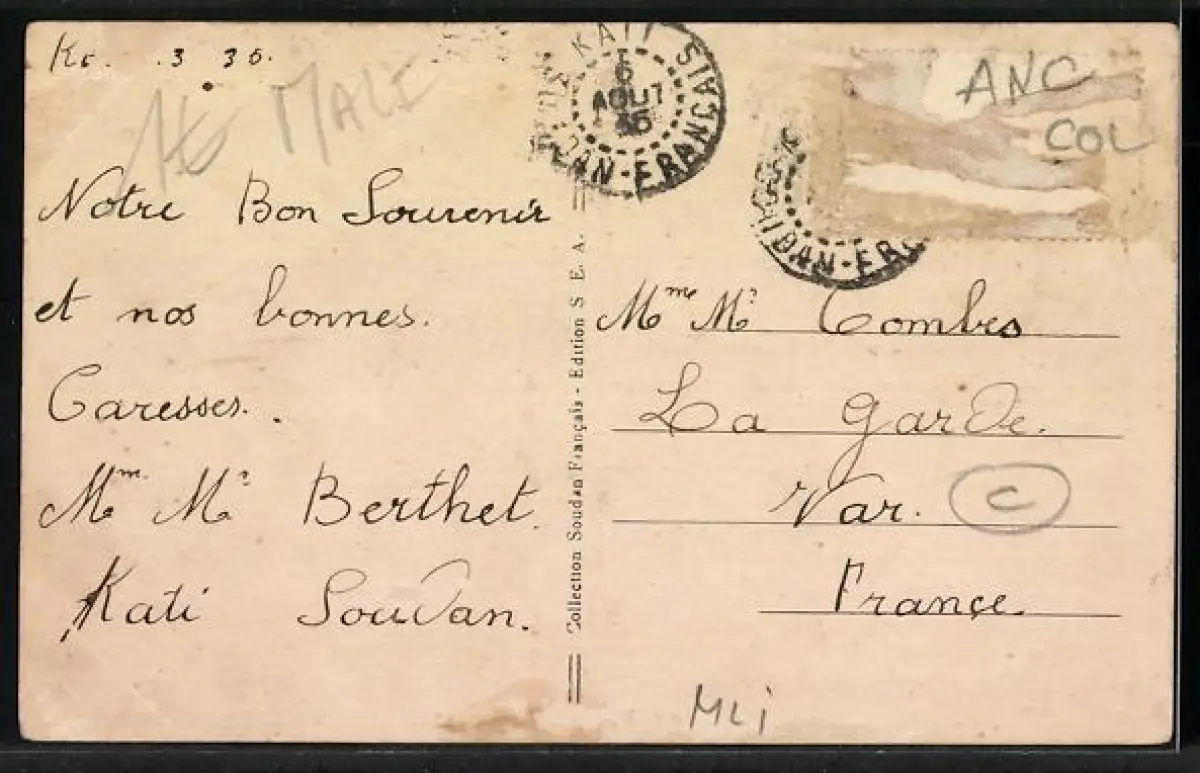 3 36.
MALI
ANC
COL
KATI
6
AOUT
36
SOUDAN-FRANCAIS
Notre Bon Souvenir
et nos bonnes.
Caresses.
Mme Mr Berthet.
Kati Soudan.
Collection Soudan Français - Edition S. E. A.
Mme Mr Combes
La Garde.
Var.
C
France.
MLi